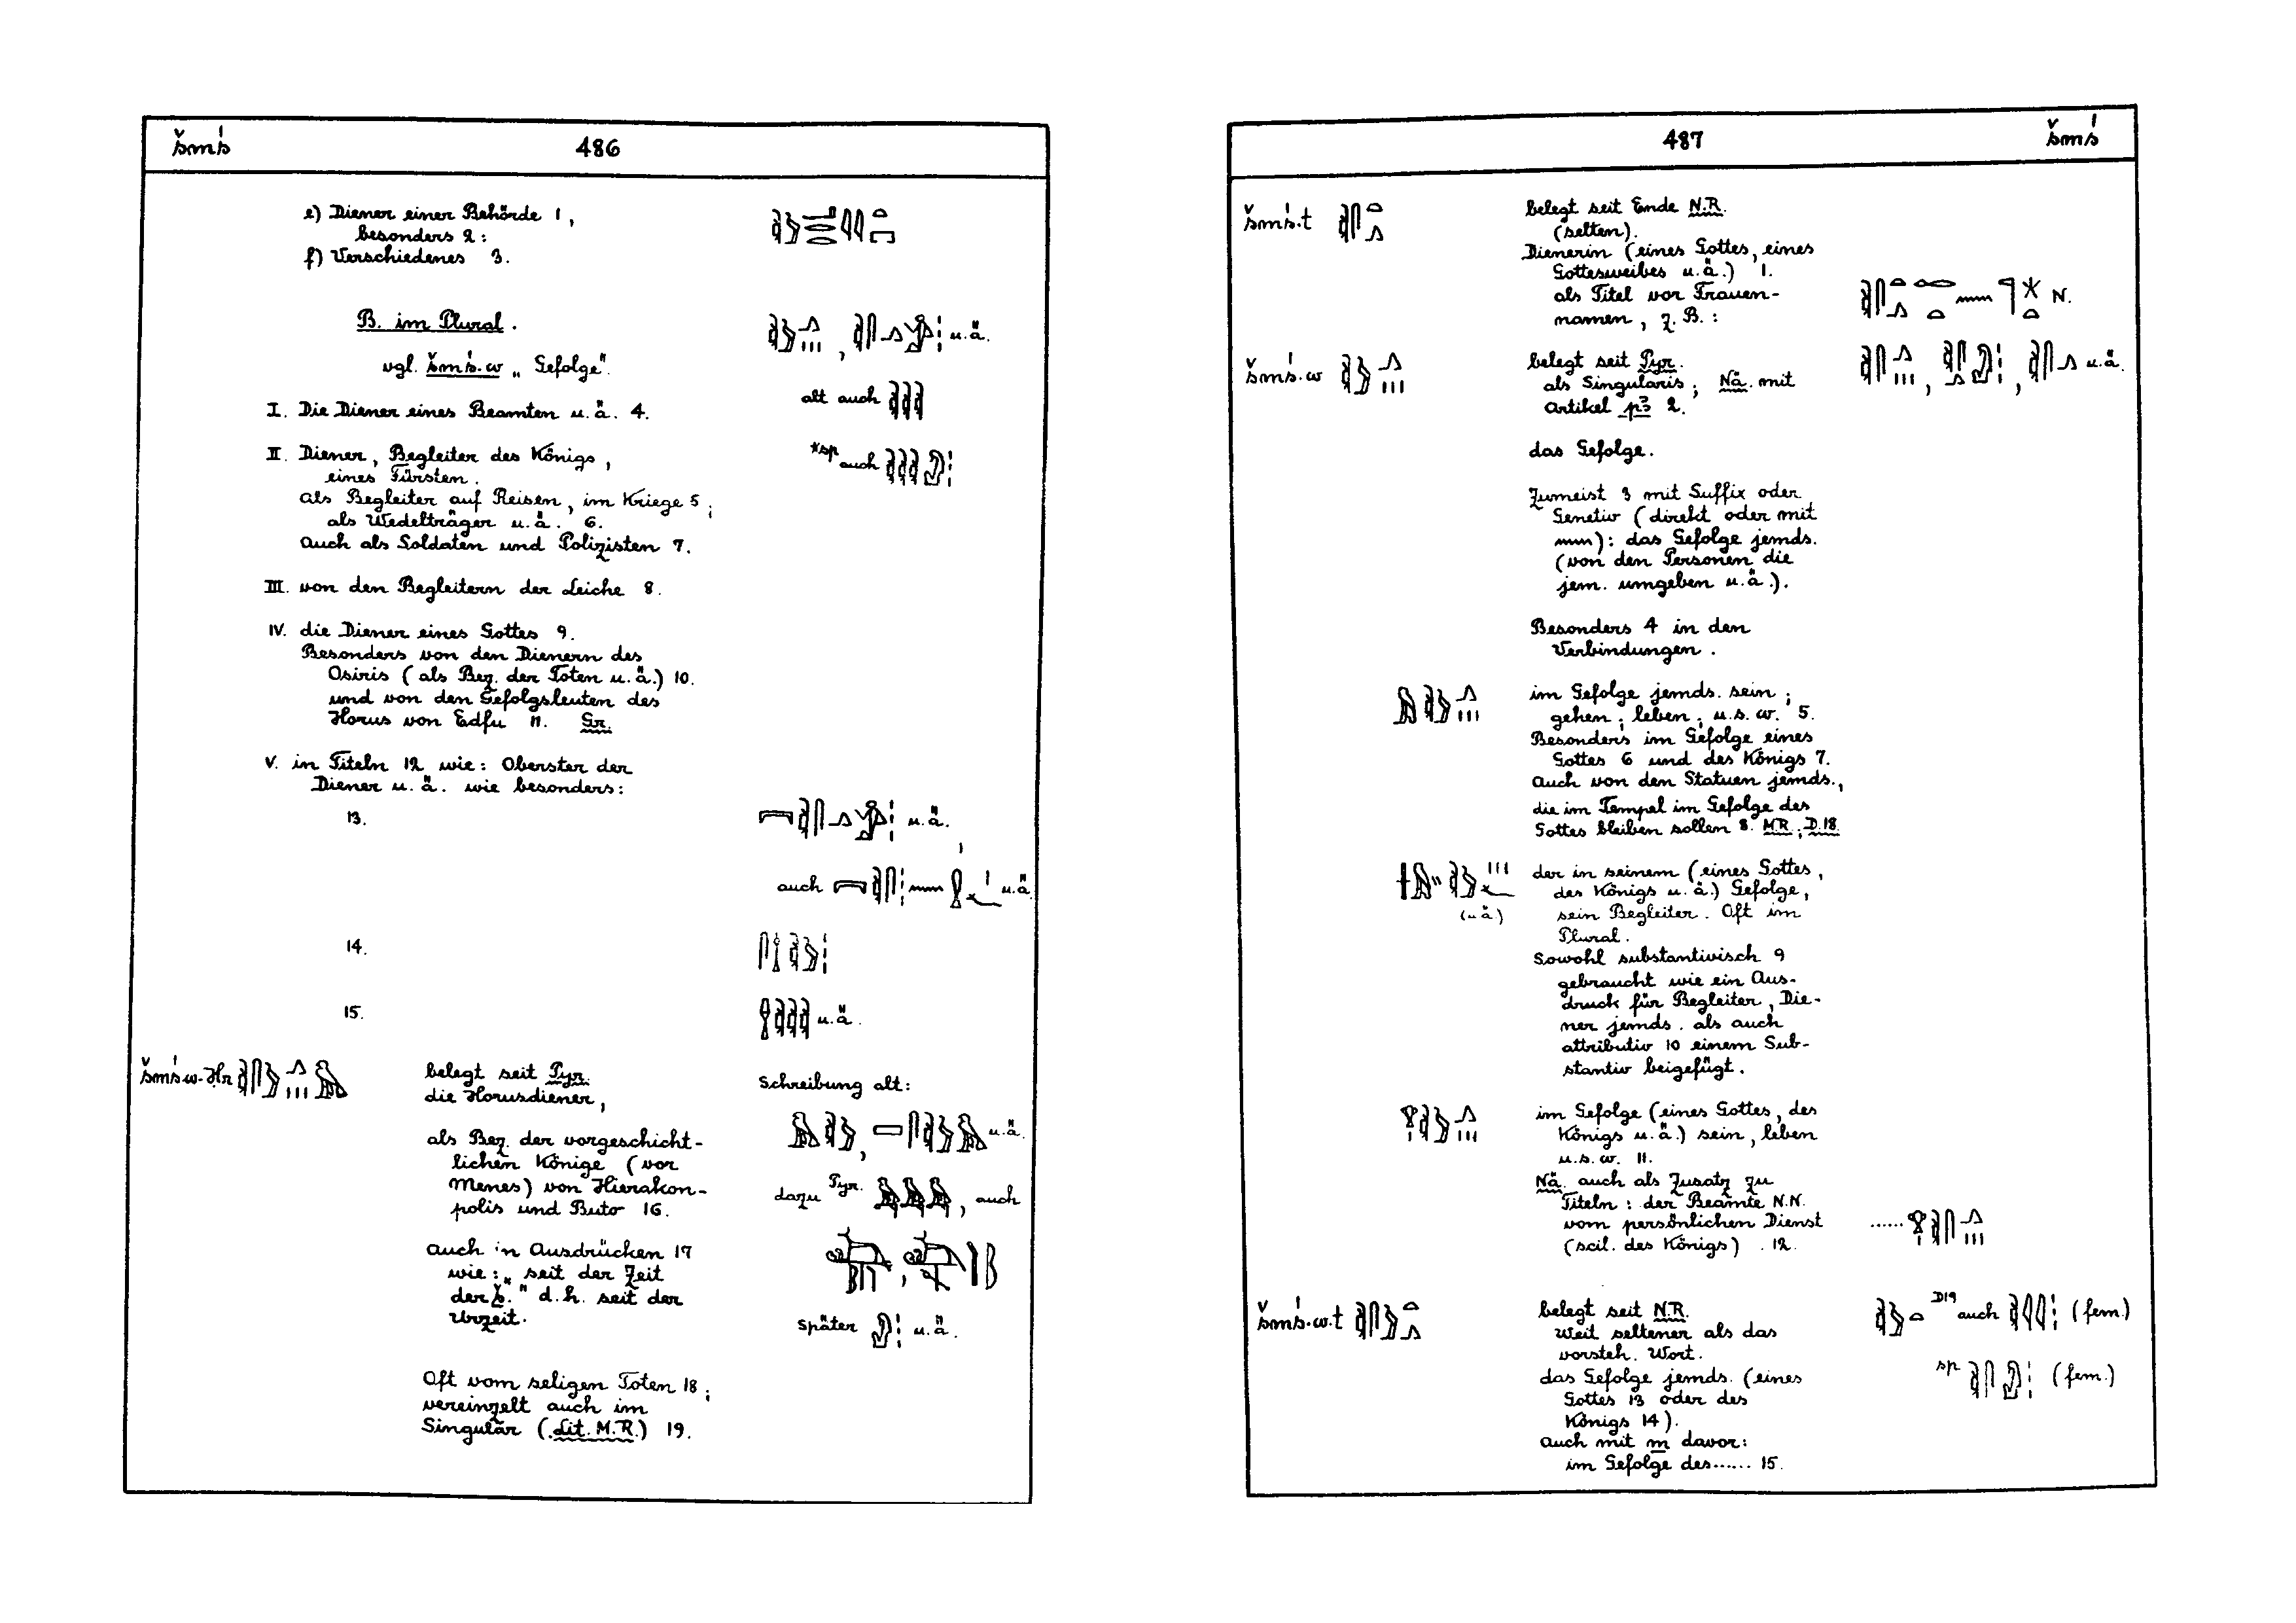 šmś 486
e) Diener einer Behörde 1,
besonders 2:
f) Verschiedenes 3.
B. im Plural.
u.ä.
vgl. šmś.w „Gefolge".
alt auch
I. Die Diener eines Beamten u.ä. 4.
II. Diener, Begleiter des Königs,
*sp auch
eines Fürsten.
als Begleiter auf Reisen, im Kriege 5;
als Wedelträger u.ä. 6.
auch als Soldaten und Polizisten 7.
III. von den Begleitern der Leiche 8.
IV. die Diener eines Gottes 9.
Besonders von den Dienern des
Osiris (als Bez. der Toten u.ä.) 10.
und von den Gefolgsleuten des
Horus von Edfu 11. Gr.
V. in Titeln 12 wie: Oberster der
Diener u.ä. wie besonders:
13. u.ä.,
auch u.ä.
14.
15. u.ä.
šmśw-Ḥr
belegt seit Pyr.
die Horusdiener,
als Bez. der vorgeschicht-
lichen Könige (vor
Menes) von Hierakon-
polis und Buto 16.
auch in Ausdrücken 17
wie: „seit der Zeit
der š." d.h. seit der
Urzeit.
Oft vom seligen Toten 18;
vereinzelt auch im
Singular (Lit. M.R.) 19.
Schreibung alt:
, u.ä.
dazu Pyr. , auch
,
später u.ä.
487 šmś
šmś.t
belegt seit Ende N.R.
(selten).
Dienerin (eines Gottes, eines
Gottesweibes u.ä.) 1.
als Titel vor Frauen-
namen, z.B.: N.
šmś.w
belegt seit Pyr.
als Singularis; Nä. mit
Artikel pꜣ 2.
, , u.ä.
das Gefolge.
Zumeist 3 mit Suffix oder
Genetiv (direkt oder mit
𓈖): das Gefolge jemds.
(von den Personen die
jem. umgeben u.ä.).
Besonders 4 in den
Verbindungen.
im Gefolge jemds. sein;
gehen; leben; u.s.w. 5.
Besonders im Gefolge eines
Gottes 6 und des Königs 7.
Auch von den Statuen jemds.,
die im Tempel im Gefolge des
Gottes bleiben sollen 8. MR.; D.18.
(u.ä.)
der in seinem (eines Gottes,
des Königs u.ä.) Gefolge,
sein Begleiter. Oft im
Plural.
Sowohl substantivisch 9
gebraucht wie ein Aus-
druck für Begleiter, Die-
ner jemds. als auch
attributiv 10 einem Sub-
stantiv beigefügt.
im Gefolge (eines Gottes, des
Königs u.ä.) sein, leben
u.s.w. 11.
Nä. auch als Zusatz zu
Titeln: der Beamte N.N.
vom persönlichen Dienst ......
(scil. des Königs). 12.
šmś.w.t
belegt seit N.R.
Weit seltener als das
vorsteh. Wort.
das Gefolge jemds. (eines
Gottes 13 oder des
Königs 14).
auch mit m davor:
im Gefolge des...... 15.
D19 auch (fem.)
sp (fem.)